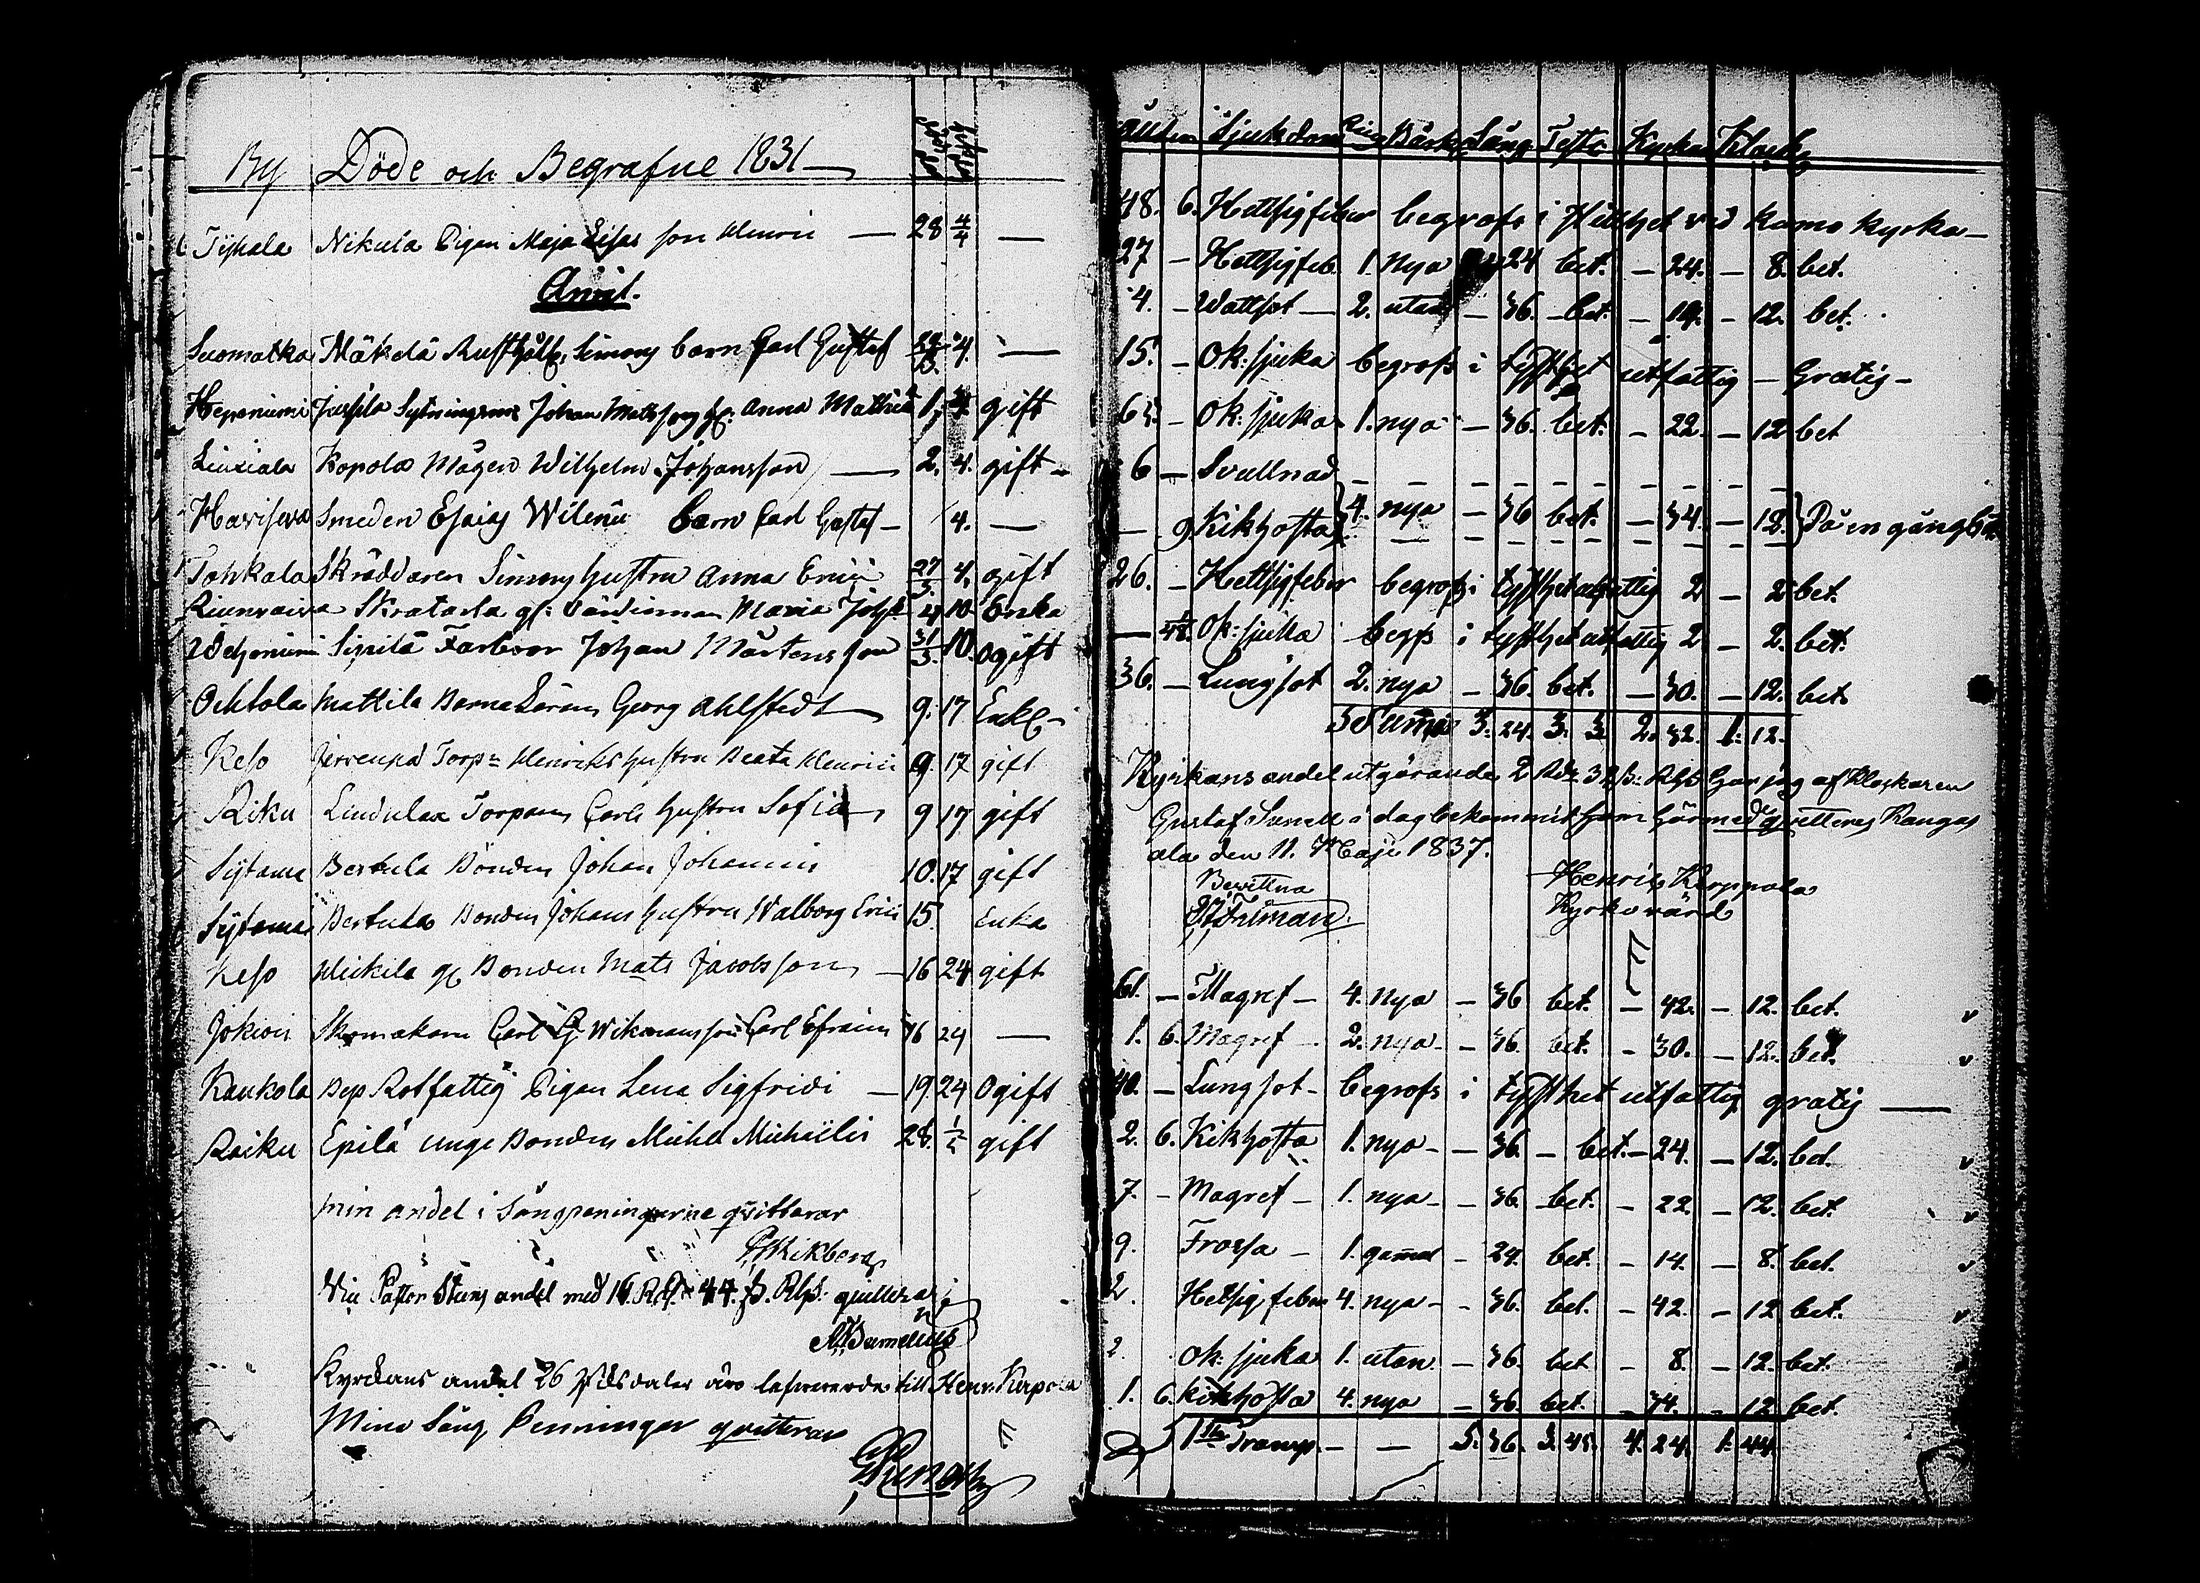 By Döde och Begrafne 1831
Nikula Pigan Maja Lisas son Henric — 28 4/4 —
April.
Suomatka Mäkelä barn Carl Gustaf 4. —
Jussila Sytningsm Johan Matssons h. Anna Matthiæ 1. 4. gift
Liuxiala Kopola Mågen Wilhelm Johansson — 2. 4. gift
Smeden Esaias Wilenii barn Carl Gustaf — 4. —
Tohkala Skräddaren Simons hustru Anna Erici 27/3 4. gift
Maria 4 10. Enka
Sipilä Farbror Johan Mårtensson 31/3. 10. ogift
Ochtola Mattila Georg Ahlstedt 9. 17 Enkl.
Keso Torp: Henriks hustru Beata Henrici 9. 17 gift
Riku Torparen Carls hustru Sofia 9 17 gift
Sytama Bertula Bonden Johan Johannis 10. 17 gift
Sytama Bertula Bonden Johans hustru Walborg Erici 15. Enka
Keso gl Bonden Mats Jacobsson — 16 24 gift
Jokioin Skomakarn Carl G Wikmans son Carl Efraim 16 24 —
Kaukola Rotfattig Pigan Lena Sigfridi — 19. 24 Ogift
Raiku Epilä unge Bonden Michel Michaëlis 28. 1/5 gift
min andel i Sångpeningarne qvitterar
Wikberg
andel med 16 Rd. 44. ß. Rgs. quitterar
Kyrckans andel 26 Riksdaler äro lefvererade till Henr. Kerpola
Mine Sång Penningar qvitteras
Sjukdom Ring Bårk Sång Test Kyrka Klock
48. 6. Hettsigfeber begrofs i tysthet vid kyrka —
27 — Hettsigfeb. 1. nya 24 bet. — 24. — 8. bet.
4. — Wattsot — 2. utan — 36. — bet. — 19. — 12. bet.
15. — Ok: sjuka begrofs i tysthet utfattig — Gratis —
63. — Ok: sjuka 1. nya — 36. bet. — 22. — 12. bet
6 — Svullnad — — — — — — —
— 9. Kikhosta 4. nya — 36 bet. — 34. — 12. På en gång bet.
26. — Hettsigfeber begrofs i tysthet utfattig 2 — 2 bet.
— Ok: sjuka begrfs i tysthet utfattig 2. — 2. bet.
36. — Lungsot 2. nya — 36. bet. — 30. — 12. bet
Summa 3. 24. 3. 3. 2. 32. 1. 12.
Kyrkans andel utgörande 2 Rdr 32 ß: Rgs har jag af Klockaren
Gustaf i dag bekommit som härmed qvitteras Kangas
ala den 11. Maji 1837.
Bevittna
Henric Kerppola
Kyrkovärd
61. — Magref — 4. nya — 36 bet. — 42. — 12. bet.
1. 6. Magref — 2. nya — 36. bet. — 30. — 12. bet.
40. — Lungsot — begrofs i tysthet utfattig gratis —
2. 6. Kikhosta 1. nya — — 36. — bet. — 24. — 12. bet.
7. — Magref — 1. nya — 36. bet. — 22. — 12. bet.
9. Frossa — 1. gamal — 24. bet. — 14. — 8. bet.
2. Hetsig feber 4. nya — — 36. bet. — 42. — 12 bet.
2. ok: sjuka 1. utan — 36. bet — 8. — 12. bet.
1. 6. Kikhosta 4. nya — 36. bet. — 34. — 12 bet.
Transp. — — 5. 36. 3. 45. 4. 24. 1. 44.